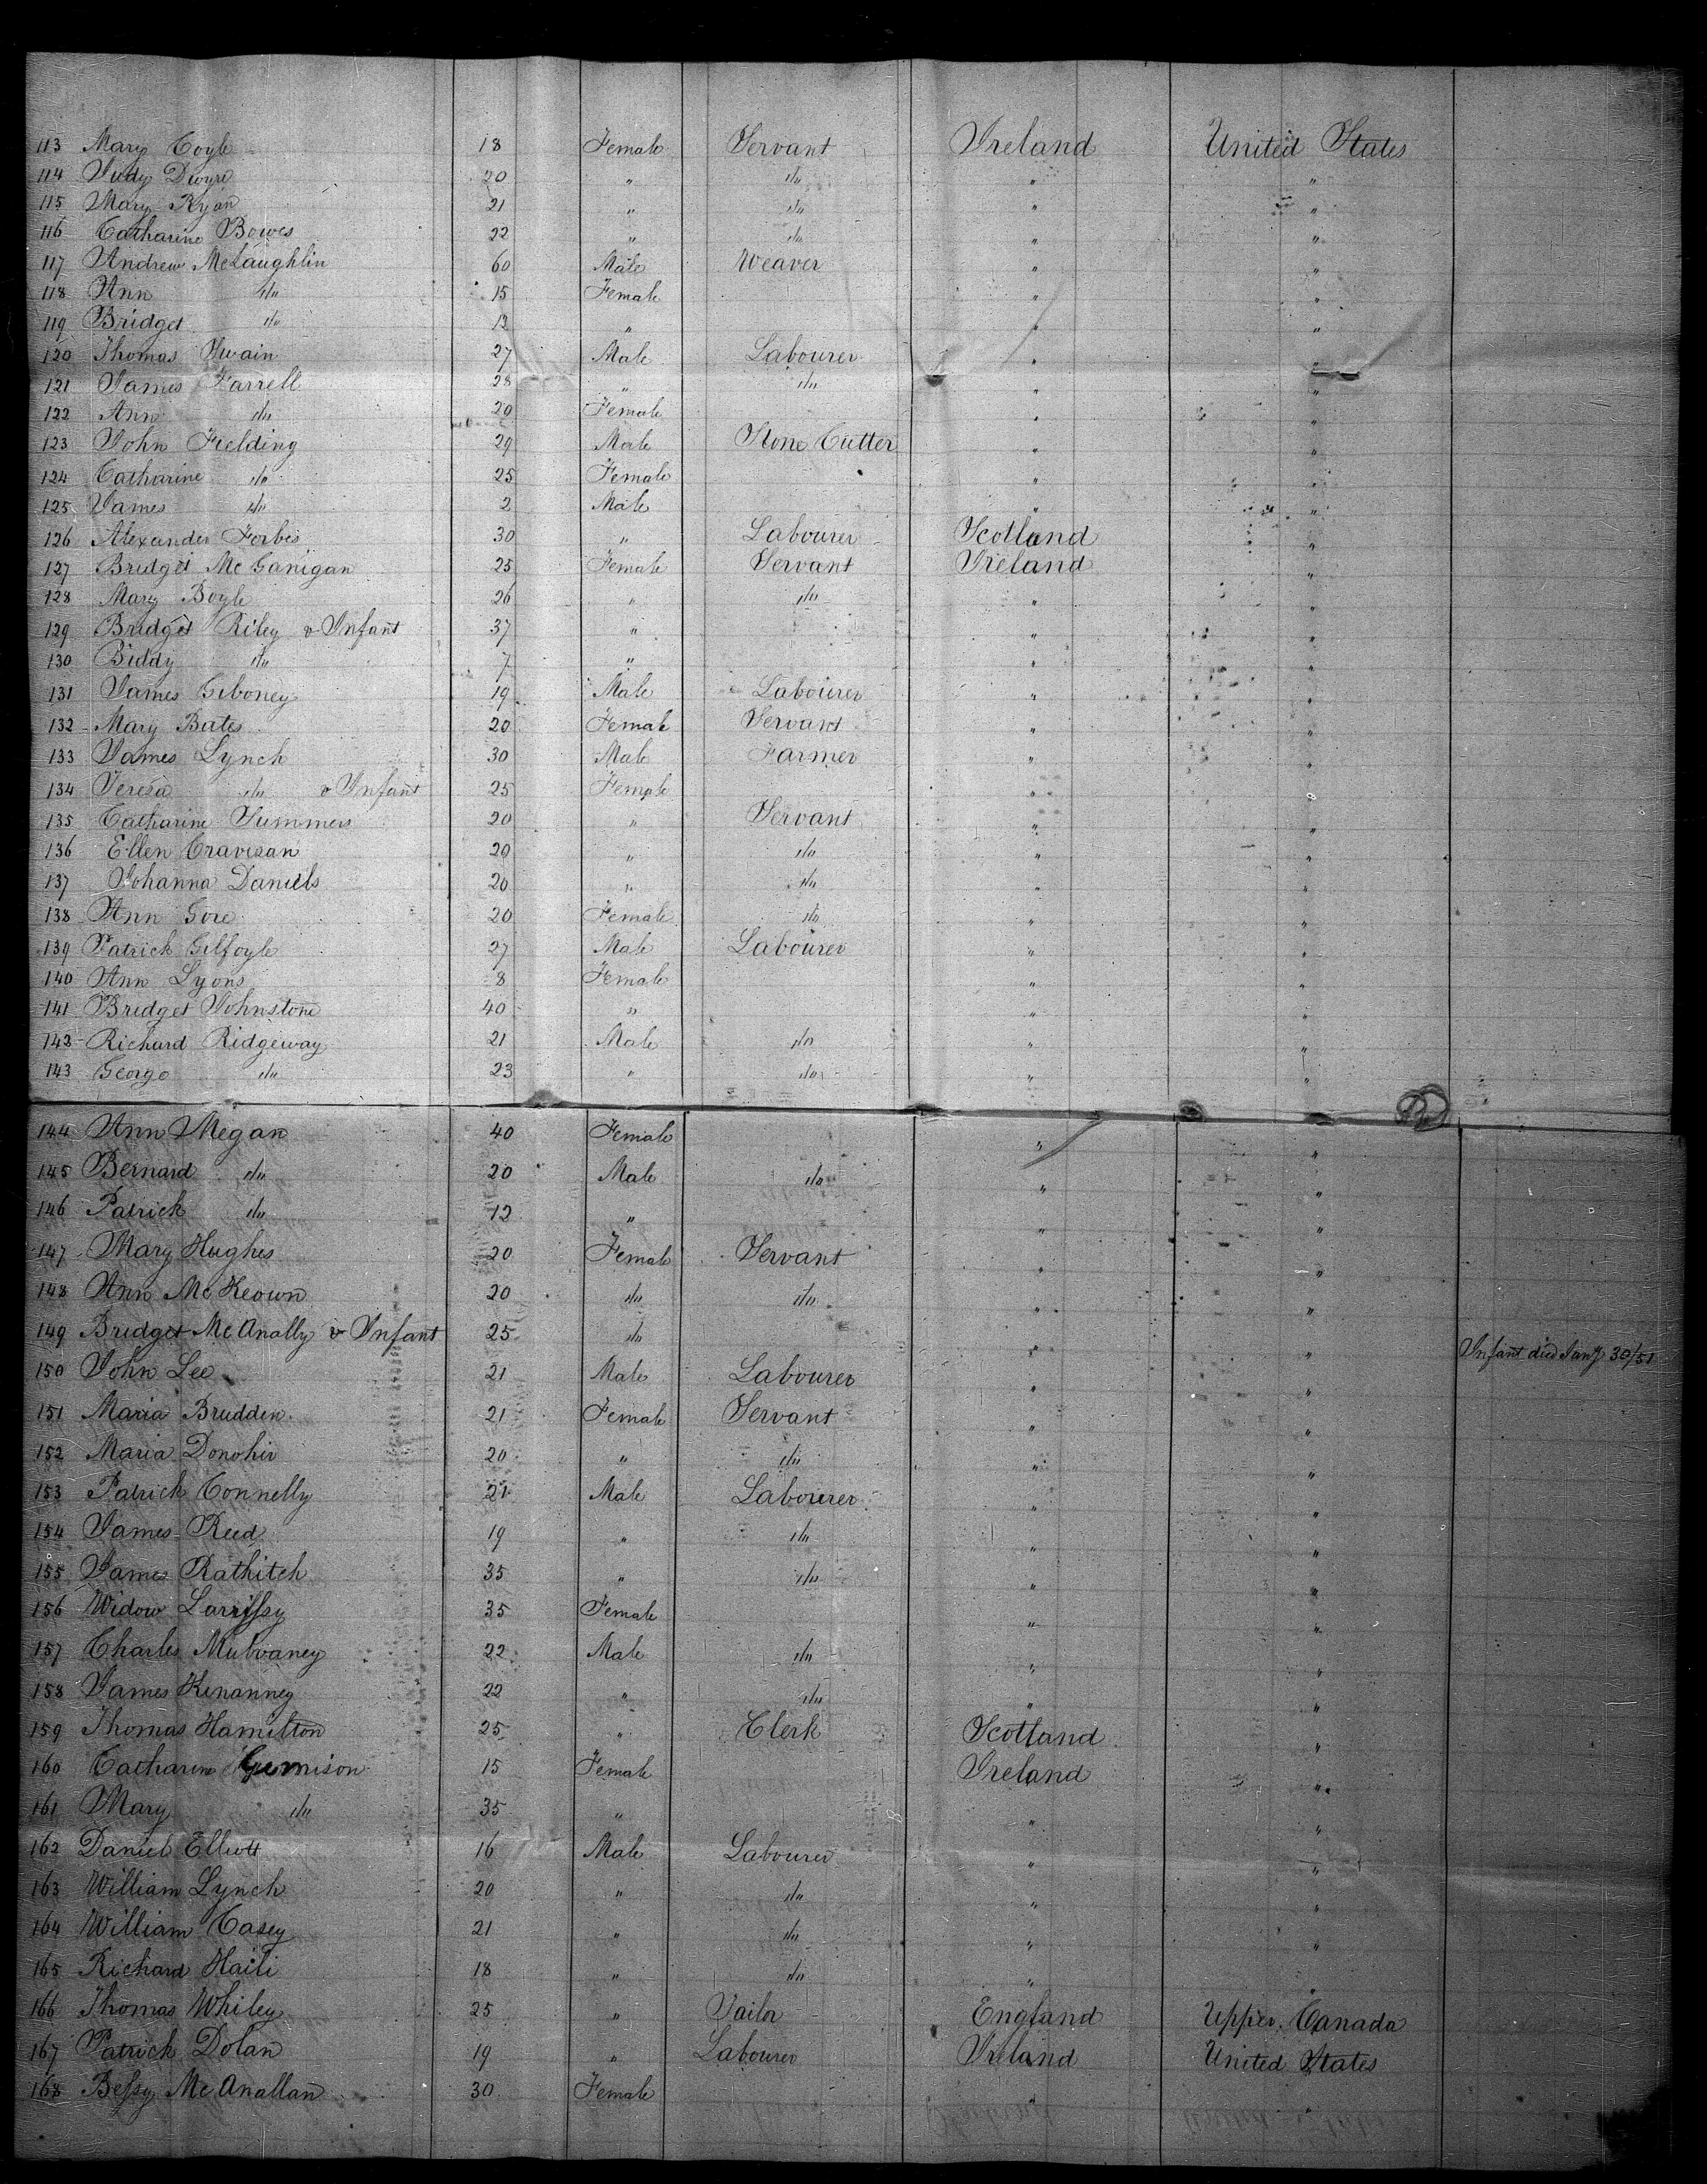 113 Mary Coyle 18 Female Servant Ireland United States
114 Judy Dwyre 20 " do " "
115 Mary Ryan 21 " do " "
116 Catharine Bowes 22 " do " "
117 Andrew McLaughlin 60 Male Weaver " "
118 Ann do 15 Female " "
119 Bridget do 12 " " "
120 Thomas Swain 27 Male Labourer " "
121 James Farrell 28 " do " "
122 Ann do 20 Female " "
123 John Fielding 29 Male Stone Cutter " "
124 Catharine do 25 Female " "
125 James do 2 Male " "
126 Alexander Forbes 30 " Labourer Scotland "
127 Bridget McGanigan 25 Female Servant Ireland "
128 Mary Boyle 26 " do " "
129 Bridget Riley & Infant 37 " " "
130 Biddy do 7 " " "
131 James Giboney 19 Male Labourer " "
132 Mary Bates 20 Female Servant " "
133 James Lynch 30 Male Farmer " "
134 Teresa do & Infant 25 Female " "
135 Catharine Summers 20 " Servant " "
136 Ellen Cravesan 20 " do " "
137 Johanna Daniels 20 " do " "
138 Ann Gore 20 Female do " "
139 Patrick Gilfoyle 27 Male Labourer " "
140 Ann Lyons 8 Female " "
141 Bridget Johnstone 40 " " "
142 Richard Ridgeway 21 Male do " "
143 George do 23 " do " "
144 Ann Megan 40 Female " "
145 Bernard do 20 Male do " "
146 Patrick do 12 " " "
147 Mary Hughes 20 Female Servant " "
148 Ann McKeown 20 do do " "
149 Bridget McAnally & Infant 25 do " " Infant died Jany 30/51
150 John Lee 21 Male Labourer " "
151 Maria Brudden 21 Female Servant " "
152 Maria Donohir 20 " do " "
153 Patrick Connelly 21 Male Labourer " "
154 James Reed 19 " do " "
155 James Rathitch 35 " do " "
156 Widow Larrissy 35 Female " "
157 Charles Mulvaney 22 Male do " "
158 James Kenanney 22 " do " "
159 Thomas Hamilton 25 " Clerk Scotland "
160 Catharine 15 Female Ireland "
161 Mary do 35 " " "
162 Daniel Elliott 16 Male Labourer " "
163 William Lynch 20 " do " "
164 William Casey 21 " do " "
165 Richard Haili 18 " do " "
166 Thomas Whiley 25 " Tailor England Upper Canada
167 Patrick Dolan 19 " Labourer Ireland United States
168 Bessy McAnallan 30 Female " "